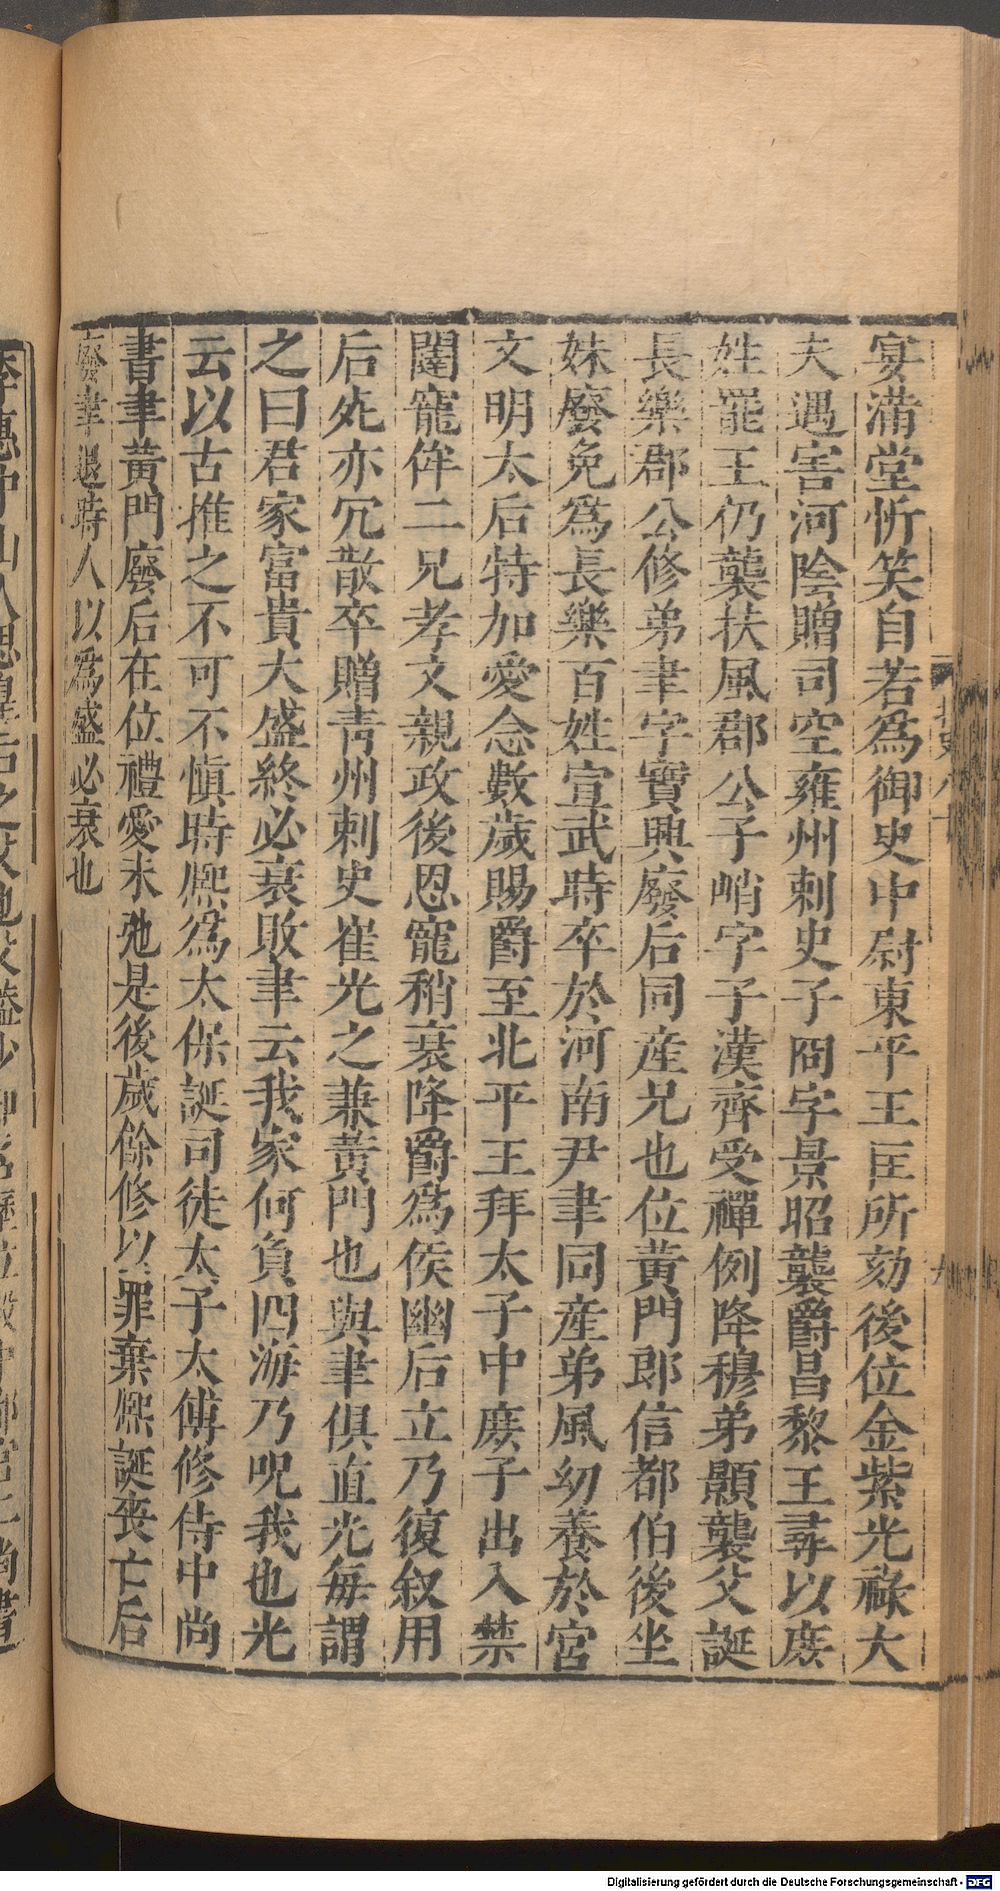 宴滿堂忻笑自若為御史中尉東平王匡所劾後位金紫光祿大
夫遇害河陰贈司空雍州刺史子冏字景昭襲爵昌黎王尋以庶
姓罷王仍襲扶風郡公子峭字子漢齊受禪例降穆弟顥襲父誕
長樂郡公修弟聿字寶興廢后同産兄也位黃門郎信都伯後坐
妹廢免爲長樂百姓宣武時卒於河南尹聿同産弟風幼養於宮
文明太后特加愛念數歲賜爵至北平王拜太子中庶子出入禁
闥寵侔二兄孝文親政後恩寵稍衰降爵爲侯幽后立乃復叙用
后死亦冗散卒贈青州刺史崔光之兼黃門也與聿俱直光每謂
之曰君家富貴大盛終必衰敗聿云我家何負四海乃呪我也光
云以古推之不可不慎時熈爲太保誕司徒太子太傅修侍中尚
書聿黃門廢后在位禮愛未弛是後歲餘修以罪棄熈誕喪亡后
廢聿退時人以爲盛必衰也
Digitalisierung gefördert durch die Deutsche Forschungsgemeinschaft - DFG